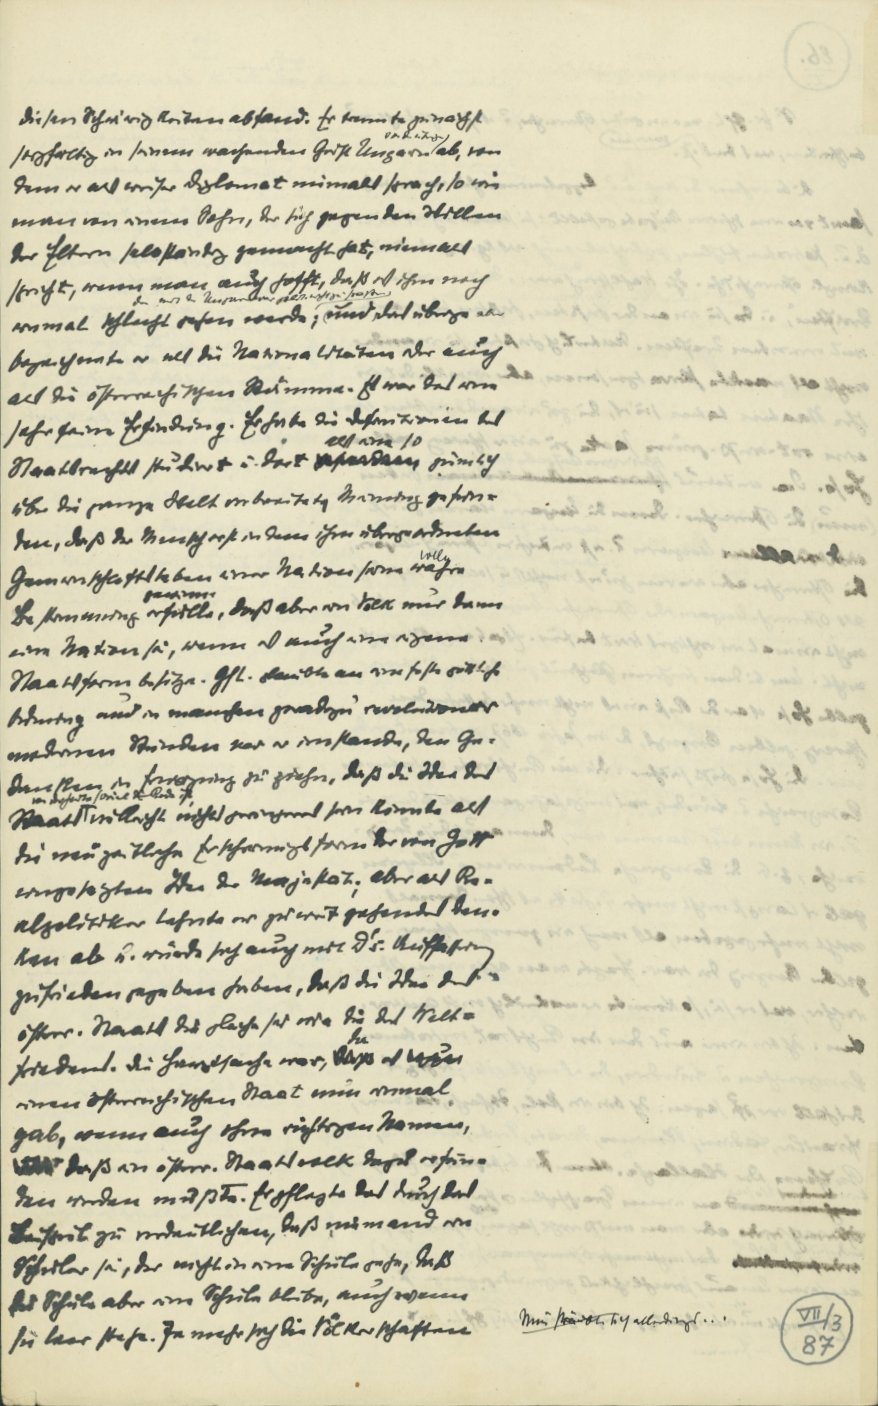 diesen Schwierigkeiten abfand. Er trennte zunächst
sorgfältig in seinem wachenden Geist Ungarn ab, von
dem er als weiser Diplomat niemals sprach, so wie
man von einem Sohn, der sich gegen den Willen
der Eltern selbständig gemacht hat, niemals
spricht, wenn man auch hofft, daß es ihm noch
einmal schlecht gehen werde; und das übrige
bezeichnete er als die Nationalitäten oder auch
als die österreichischen Stämme. Es war das eine
sehr feine Erfindung. Er hatte die Definitionen des
Staatsrechts studiert u. dort als eine so ziemlich
über die ganze Welt verbreitete Meinung gefun-
den, daß der Mensch erst in dem ihm übergeordneten
Gemeinschaftsleben einer Nation seine wahre
Bestimmung erfülle, daß aber ein Volk nur dann
eine Nation sei, wenn es auch eine eigene
Staatsform besitze. Gf L. glaubte an eine feste göttliche
Ordnung und in manchen geradezu revolutionär
modernen Stunden war er imstande, den Ge-
danken in Erwägung zu ziehn, daß die Idee des
Staats vielleicht nichts geringeres sein könnte als
die neuzeitliche Erscheinungsform der von Gott
eingesetzten Idee der Majestät; aber als Re-
alpolitiker lehnte er zu weit gehendes Den-
ken ab u. würde sich auch mit D's. Auffassung
zufrieden gegeben haben, daß die Idee des
österr. Staats die gleiche sei wie die des Welt-
friedens. Die Hauptsache war, daß es
einen österreichischen Staat nun einmal
gab, wenn auch ohne richtigen Namen,
daß ein österr. Staatsvolk dazu erfun-
den werden mußte. Er pflegte das durch das
Beispiel zu verdeutlichen, daß niemand ein
Schüler sei, der nicht in eine Schule gehe, daß
die Schule aber eine Schule bleibe, auch wenn
sie leer stehe. Je mehr sich die Völkerschaften
Nun sträubte sich allerdings ...
VII/3
87